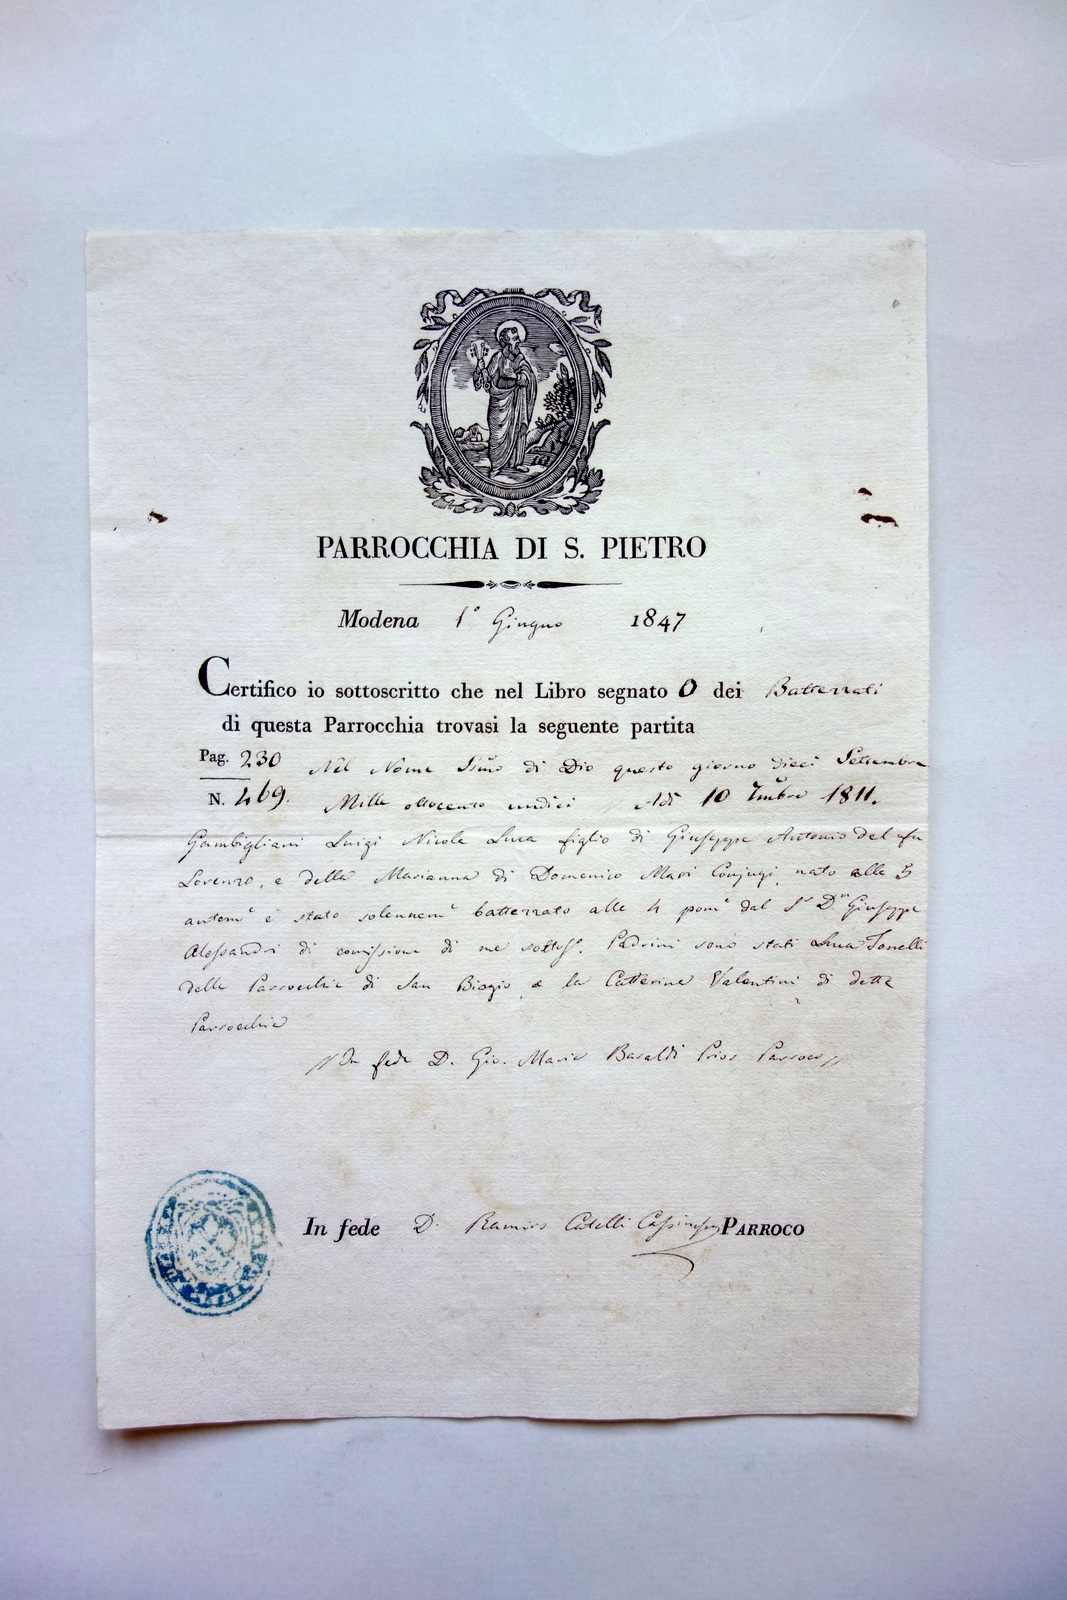 PARROCCHIA DI S. PIETRO
Modena 1° Giugno 1847
Certifico io sottoscritto che nel Libro segnato O dei Battezzati
di questa Parrocchia trovasi la seguente partita
Pag. 230 Nel Nome Ssmo di Dio questo giorno dieci Settembre
N. 469. Mille ottocento undici Adì 10 7mbre 1811.
Gambigliani Luigi Nicola Luca figlio di Giuseppe Antonio del fu
Lorenzo, e della Marianna di Domenico Masi Conjugi, nato alle 5
antime è stato solenneme battezzato alle 4 pome dal Sr Dn Giuseppe
Alessandri di comissione di me sottoso. Padrini sono stati Luca Tonelli
della Parrocchia di San Biagio, e la Catterina Valentini di detta
Parrocchia
// In fede D. Gio. Maria Baraldi Prior Parroco //
In fede D. Ramiro PARROCO